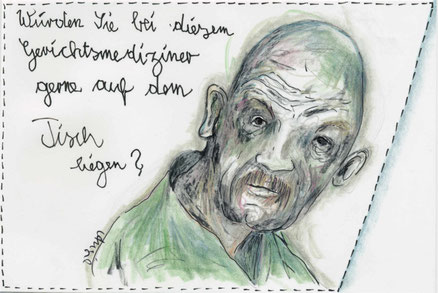 Würden Sie bei diesem
Gerichtsmediziner
gerne auf dem
Tisch
liegen?